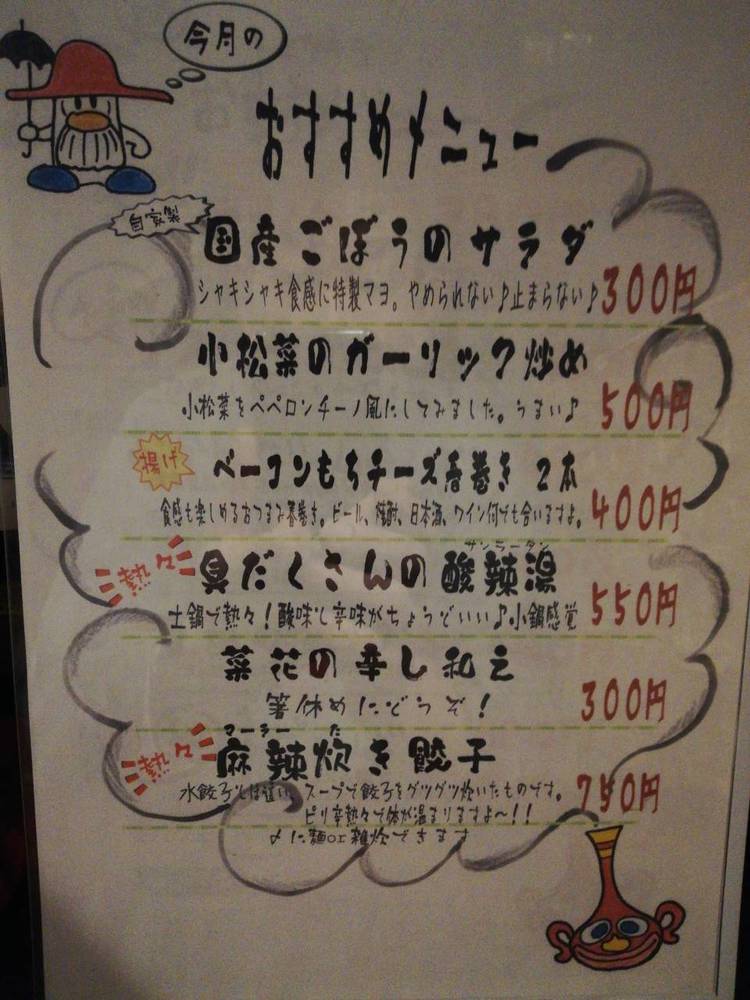 今月の
おすすめメニュー
自家製
国産ごぼうのサラダ
シャキシャキ食感に特製マヨ。やめられない♪止まらない♪
300円
小松菜のガーリック炒め
小松菜をペペロンチーノ風にしてみました。うまい♪
500円
揚げ
ベーコンもちチーズ春巻き 2本
食感も楽しめるおつまみ春巻き。ビール、焼酎、日本酒、ワイン何でも合いますよ。
400円
熱々
サンラータン
具だくさんの酸辣湯
土鍋で熱々!酸味と辛味がちょうどいい♪小鍋感覚
550円
菜花の辛し和え
箸休めにどうぞ!
300円
熱々
マーラー た
麻辣炊き餃子
水餃子とは違い、スープで餃子をグツグツ炊いたものです。
ピリ辛熱々で体が温まりますよ〜!!
750円
〆に麺or雑炊できます